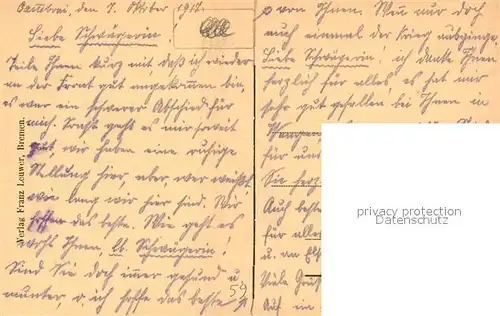 Cambrai, den 7. Oktober 1917.
Liebe Schwägerin!
Teile Ihnen kurz mit, daß ich wieder
an der Front gut angekommen bin,
es war ein schwerer Abschied für
mich. Sonst geht es mir soweit
gut, wir haben eine ruhige
Stellung hier, aber wer weiß
wie lang wir hier sind. Wir
hoffen das beste. Wie geht es
wohl Ihnen, lb. Schwägerin!
Sind Sie doch immer gesund u.
munter, ich hoffe das beste
54
Verlag Franz Leuwer, Bremen.
von Ihnen. Wenn nur doch
auch einmal der Krieg ausginge.
Liebe Schwägerin! ich danke Ihnen
herzlich für alles, es hat mir
sehr gut gefallen bei Ihnen in
für
Sie
Auch
für alles
u. von
Viele
Auf
privacy protection
Datenschutz